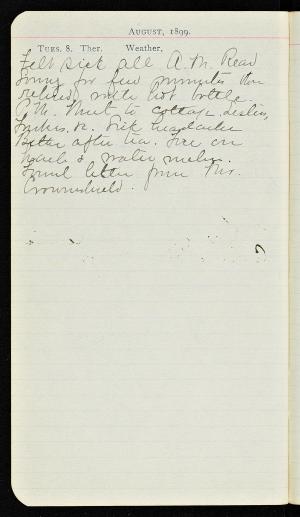 August, 1899.
Tues. 8. Ther. Weather.
Felt sick all A.M. Read
for few minutes then
retired with hot bottle.
P.M. Went to cottage,
&c. Sick headache
Better after tea. on
& water melon.
Found letter from Mrs.
Crowninshield.